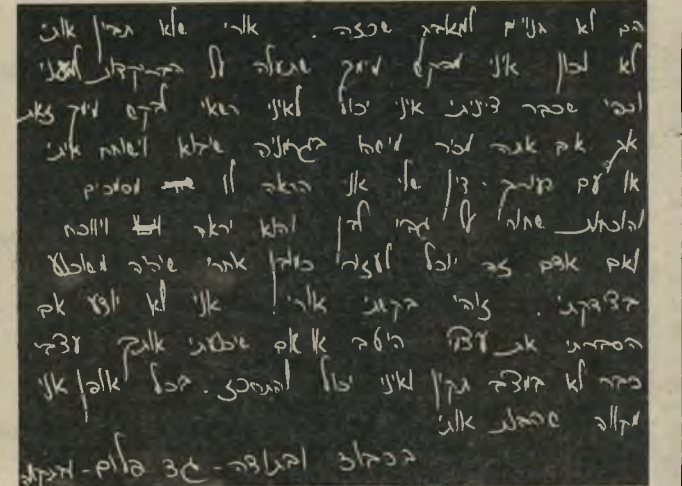 הם לא בנויים למאבק שכזה. אורי שלא תבין אותי
לא נכון אינני מבקש מימך שתעלה על הבריקדות למעני
וכפי שכבר ציינתי אני יכול ואיני רשאי לבקש מימך זאת
אך אם אתה מכיר מישהו בגרמניה שיבוא וישוחח איתי
או עם עורך-דין שלי אני הראה לו מסמכים
והוכחות שחור על גבי לבן והוא יראה ויווכח
ואם אדם זה יוכל לעזור כמובן אחרי שיהיה משוכנע
בצידקתי. זוהי בקשתי אורי! אני לא יודע אם
הסברתי את עצמי היטב או אם שיכנעתי אותך עצבי
כבר לא במצב תקין ואיני יכול להתרכז. בכל אופן אני
מקווה שהבנת אותי
בכבוד ובתודה - גד פלום -